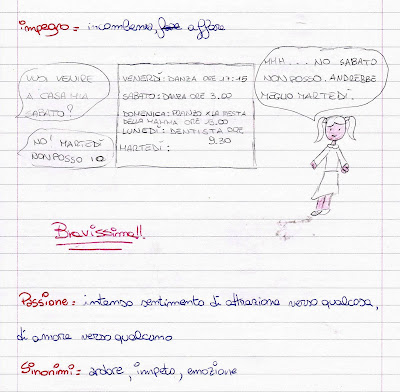 impegno = incombenza, fare affare
VUOI VENIRE
A CASA MIA
SABATO?
NO! MARTEDÌ
NON POSSO IO
VENERDÌ: DANZA ORE 17:15
SABATO: DANZA ORE 3.00
DOMENICA: PRANZO X LA FESTA
DELLA MAMMA ORE 13.00
LUNEDÌ: DENTISTA ORE
9.30
MARTEDÌ:
MHM... NO SABATO
NON POSSO. ANDREBBE
MEGLIO MARTEDÌ.
Bravissima!!
Passione = intenso sentimento di attrazione verso qualcosa,
di amore verso qualcuno
Sinonimi = ardore, impeto, emozione